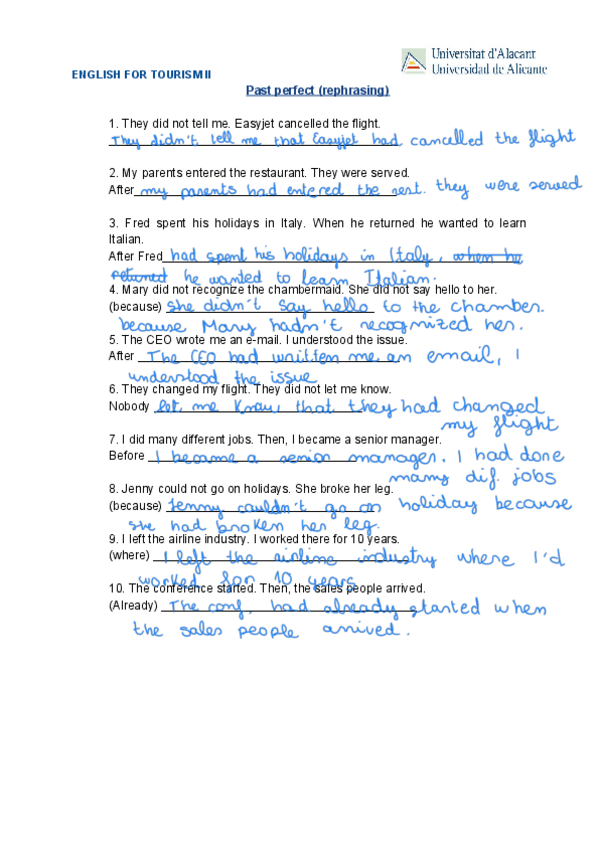 Universitat d'Alacant
Universidad de Alicante
ENGLISH FOR TOURISM II
Past perfect (rephrasing)
1. They did not tell me. Easyjet cancelled the flight.
They didn't tell me that Easyjet had cancelled the flight
2. My parents entered the restaurant. They were served.
After my parents had entered the rest. they were served
3. Fred spent his holidays in Italy. When he returned he wanted to learn
Italian.
After Fred had spent his holidays in Italy, when he
returned he wanted to learn Italian.
4. Mary did not recognize the chambermaid. She did not say hello to her.
(because) she didn't say hello to the chamber.
because Mary hadn't recognized her.
5. The CEO wrote me an e-mail. I understood the issue.
After The CEO had written me an email, I
understood the issue
6. They changed my flight. They did not let me know.
Nobody let me know, that they had changed
my flight
7. I did many different jobs. Then, I became a senior manager.
Before I became a senior manager. I had done
many dif. jobs
8. Jenny could not go on holidays. She broke her leg.
(because) Jenny couldn't go on holiday because
she had broken her leg.
9. I left the airline industry. I worked there for 10 years.
(where) I left the airline industry where I'd
worked for 10 years
10. The conference started. Then, the sales people arrived.
(Already) The conf. had already started when
the sales people arrived.